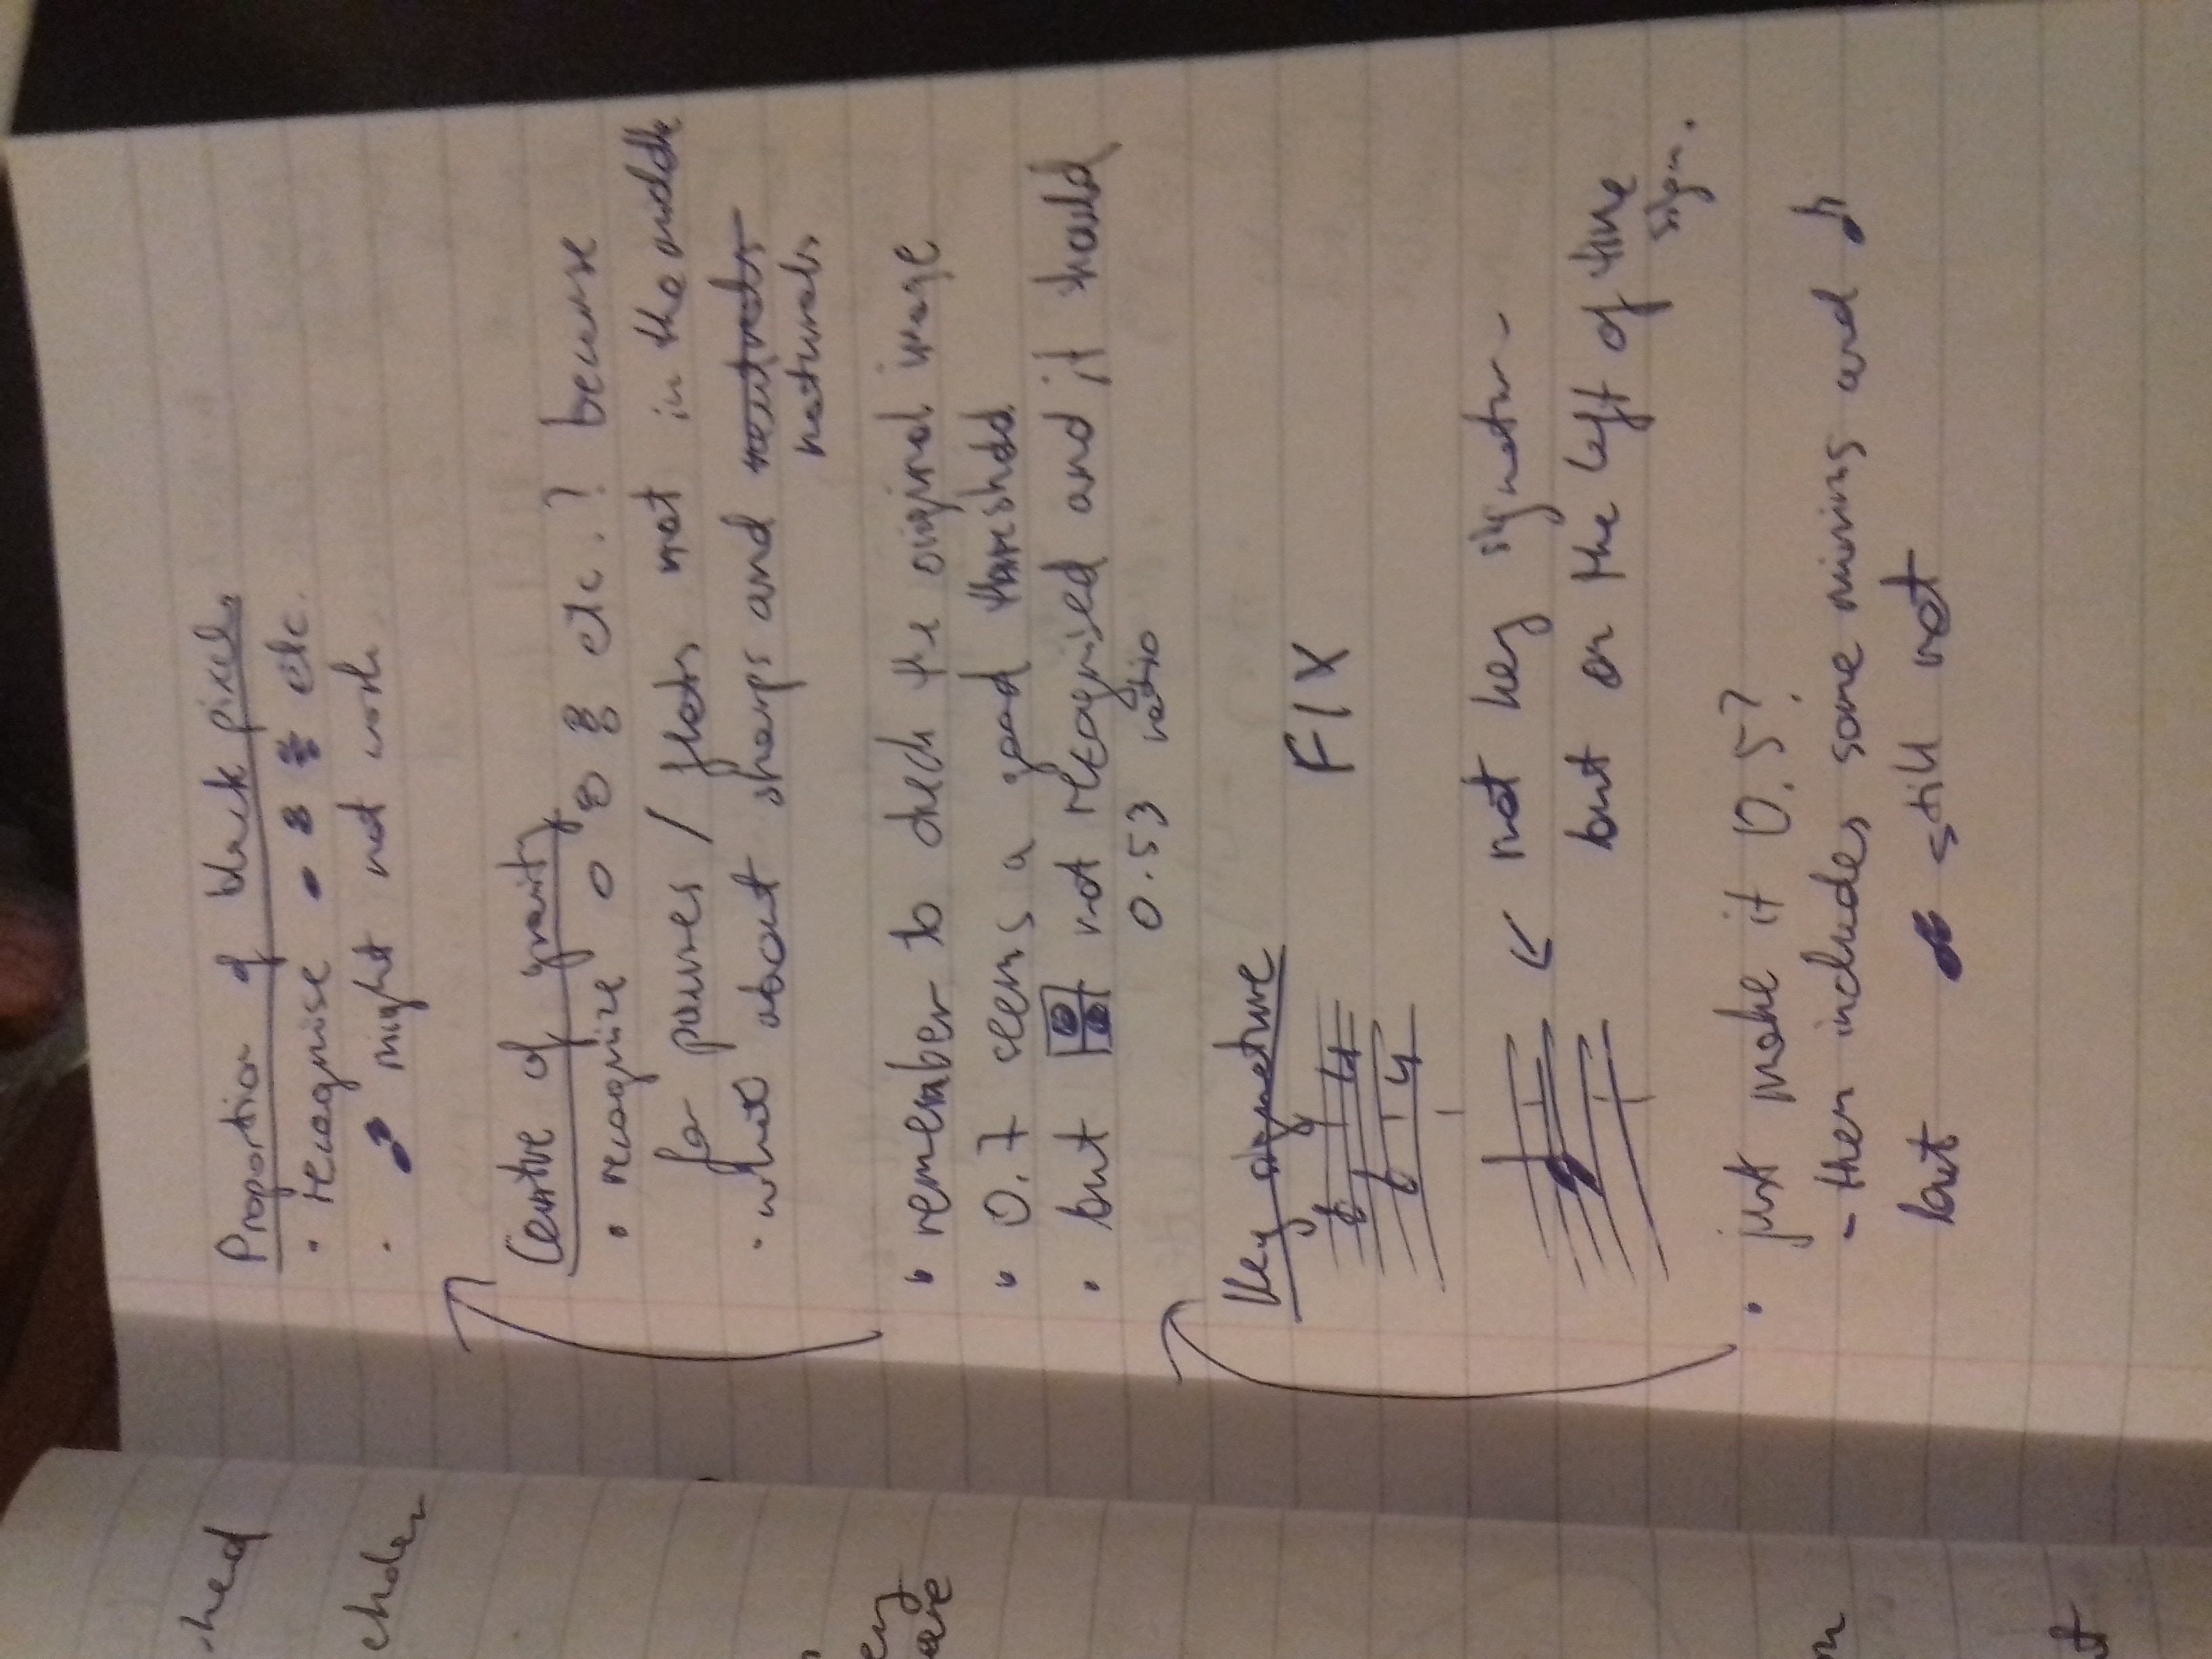 -hed
ender
ery
are
Proportion of black pixels
• recognise etc.
• might not work
Centre of gravity
• recognize etc.? because
for pauses / flats not in the middle
• what about sharps and neutrals
naturals
• remember to check the original image
• 0.7 seems a good threshold
• but not recognised and it should
0.53 ratio
Key signature
b 4
b 4
FIX
not key signature
but on the left of time
sign.
• just make it 0.5?
- then includes some minims and ♪
but still not